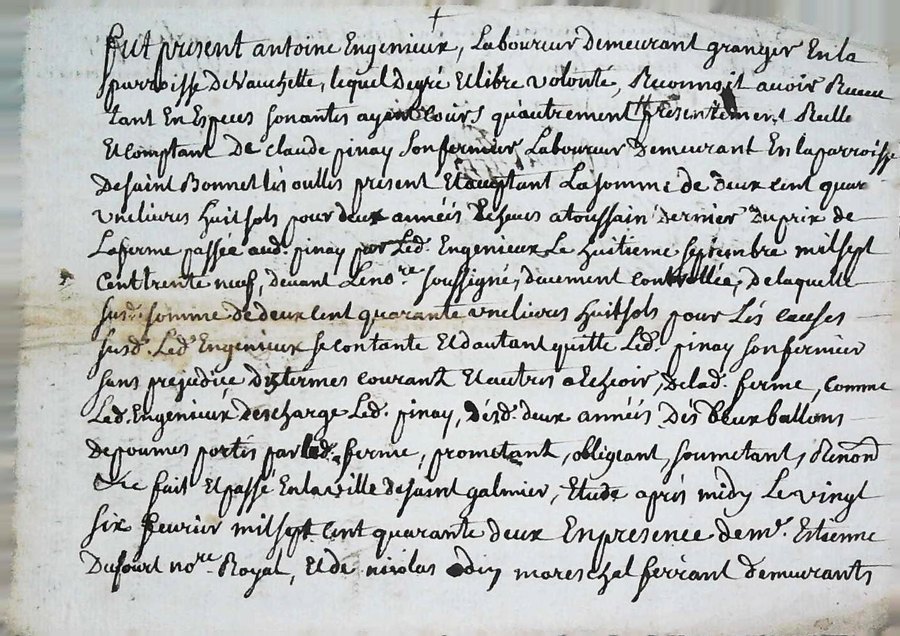 fut present antoine Engenieux, Laboureur Demeurant granger En la
parroisse De Vauchette, lequel De gré Et libre volonté, Reconnoit avoir Receu
tant En Especes sonantes ayant cours qu'autrement présentement Reelle
Et comptant De claude pinay son fermier Laboureur Demeurant En la parroisse
De saint Bonnet lés oulles present Et aceptant La somme de deux cent quar
une livres huit sols pour deux années Echeues a toussain dernier du prix de
La ferme passée aud. pinay par Led. Engenieux Le huitieme septembre mil sept
cent trente neuf, devant Le no.re soussigné, düement controllée, De laquelle
susd. somme de deux cent quarante une livres huit sols pour Lés causes
susd. Led. Engenieux se contante Et d'autant quitte Led. pinay son fermier
sans prejudice des termes courant Et autres a Echeoir, De lad. ferme, comme
Led. Engenieux descharge Led. pinay, désd. deux années Dés deux ballons
de poumes portés par lad. ferme, prometant, obligeant, soumetant, Renond
fait Et passé En la ville de saint galmier, Etude aprés midy Le vingt
six fevrier mil sept cent quarante deux En presence de m.r Estienne
Dufourt no.re Royal, Et de nicolas odin mareschel ferrant demeurants